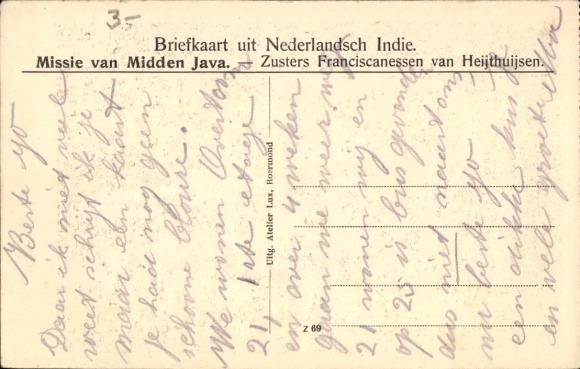 3-
Briefkaart uit Nederlandsch Indie.
Missie van Midden Java. — Zusters Franciscanessen van Heijthuijsen.
Uitg. Atelier Lux, Roermond
Z 69
Beste yo
Daar ik niet veel
weet schrijf ik je
maar een kaart
je had nog geen
schoone blouse.
We wonen Overtoom
21 1ste etage
en over 4 weken
gaan we weer weg
21 wonen wy en
op 25 is bus
dus niet naast ons
nu beste yo
een dikke kus
en vele groeten